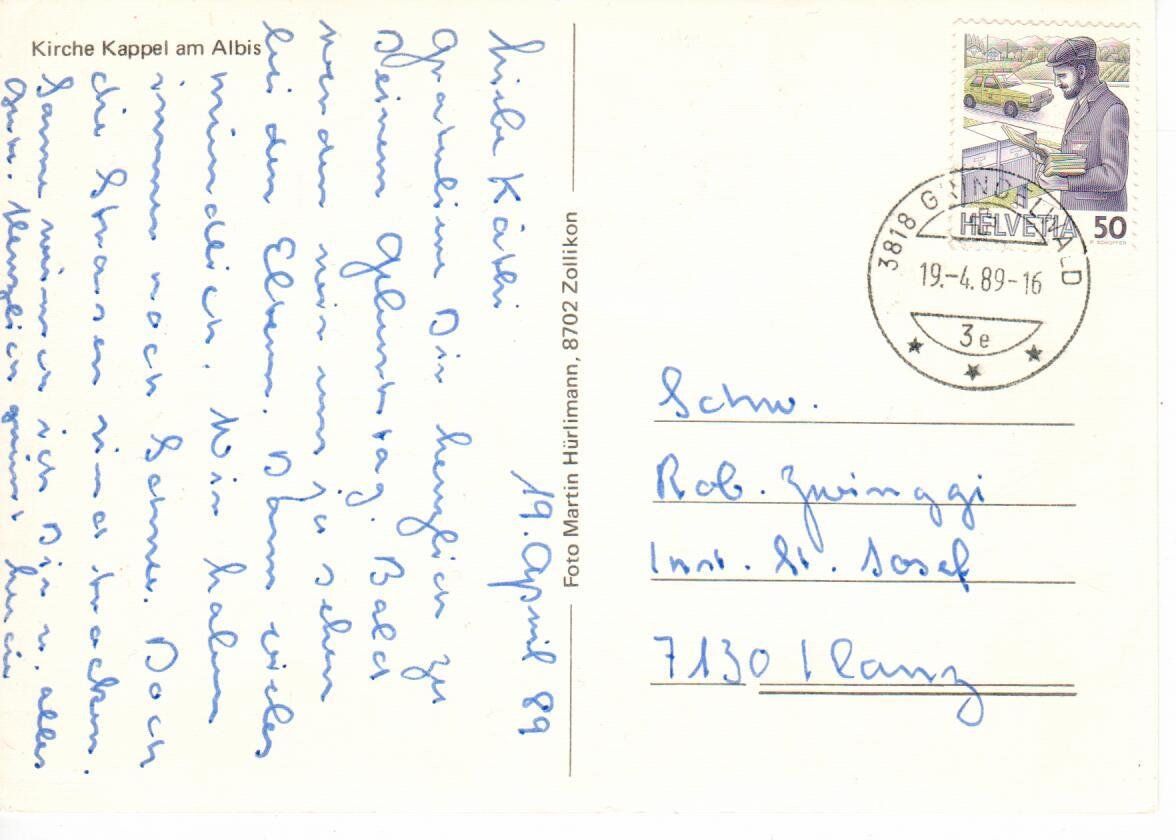 Kirche Kappel am Albis
19. April 89
Liebe Käthi
Gratuliere Dir herzlich zu
Deinem Geburtstag. Bald
werden wir uns ja sehen
bei den Eltern. Dann vieles
mündlich. Wir haben
immer noch Schnee. Doch
die Strassen sind trocken.
wünsch ich Dir alles
Gute. Herzlich grüsst
Foto Martin Hürlimann, 8702 Zollikon
HELVETIA 50
3818 GRINDELWALD
19.-4.89-16
3e
Schw.
Rob. Zwinggi
Inst. St. Josef
7130 Ilanz